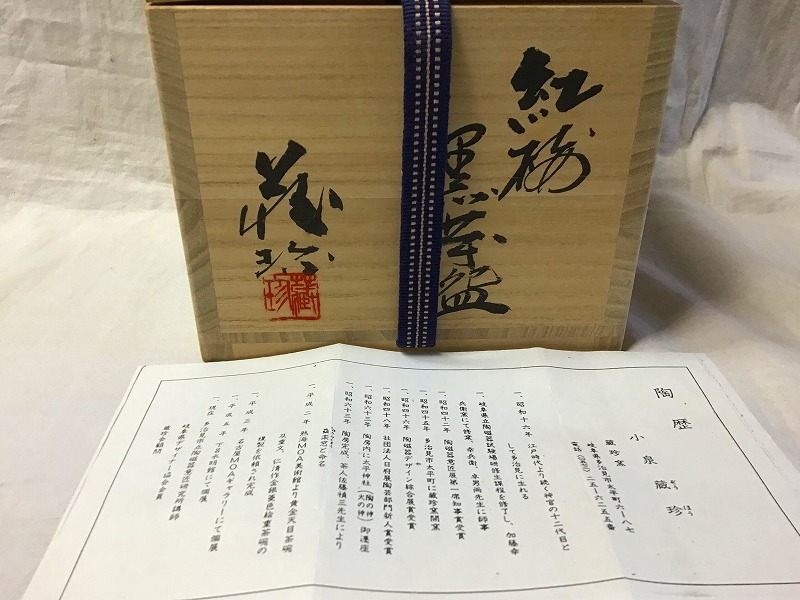 紅梅
黒茶盌
蔵珍
藏珍
陶歴
小泉藏珍
ぞう ほう
藏珍窯
岐阜県多治見市太平町六ー八七
一、昭和十六年 江戸時代より続く神官の十二代目と
して多治見に生れる
岐阜県立陶磁器試験場研修生課程を修了し、加藤幸
兵衛窯にて修業、幸兵衛、卓男両先生に師事
一、昭和四十二年 陶磁器意匠展第一席知事賞受賞
一、昭和四十五年 多治見市太平町に藏珍窯開窯
一、昭和四十六年 陶磁器デザイン綜合展賞受賞
一、昭和四十八年 社団法人日府展陶芸部門新人賞受賞
一、昭和六十三年 陶房内に太平神社(陶の神)(火の神)御遷座
一、昭和六十三年 陶房完成、茶人佐藤禎三先生により
窯と命名
一、平成二年 熱海MOA美術館より黄金天目茶碗
及重文、仁清作金銀菱色絵重茶碗の
複製を依頼され完成
一、平成三年 名古屋MOAギャラリーにて個展
一、平成五年 下呂水明館にて個展
一、現在 多治見市陶磁器意匠研究所講師
岐阜県デザイナー協会会員
藏珍会顧問